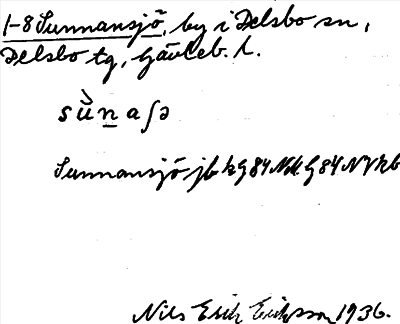 1-8 Sunnansjö, by i Delsbo sn,
Delsbo tg, Gävleb. l.
sùnaʃə
Sunnansjö jb kg 84 NV
Nils Erik Eriksson 1936.